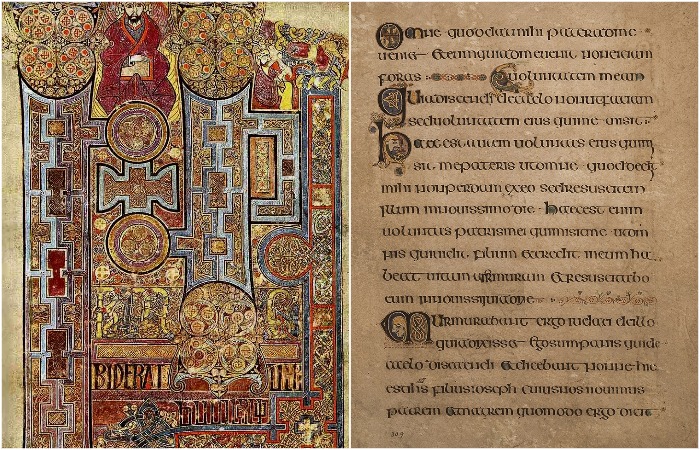 BIDERAT
Omne quod dat mihi pater ad me
ueniet Et eum qui ad me uenit non eieciam
foras uoluntatem meam
Quia discendi de caelo non ut faciam
sed uoluntatem eius qui me misit
Haec est autem uoluntas eius qui mi
sit me patris ut omne quod dedit
mihi non perdam ex eo sed resuscitem
illum in nouissimo die haec est enim
uoluntas patris mei qui misit me ut om
nis qui uidet filium et credit in eum ha
beat uitam et resuscitabo
eum in nouissimo die
Murmurabant ergo iudei de illo
quia dixisset Ego sum panis qui de
caelo discendi et dicebant nonne hic
est filius ioseph cuius nos nouimus
patrem et matrem quomodo ergo dicit
309